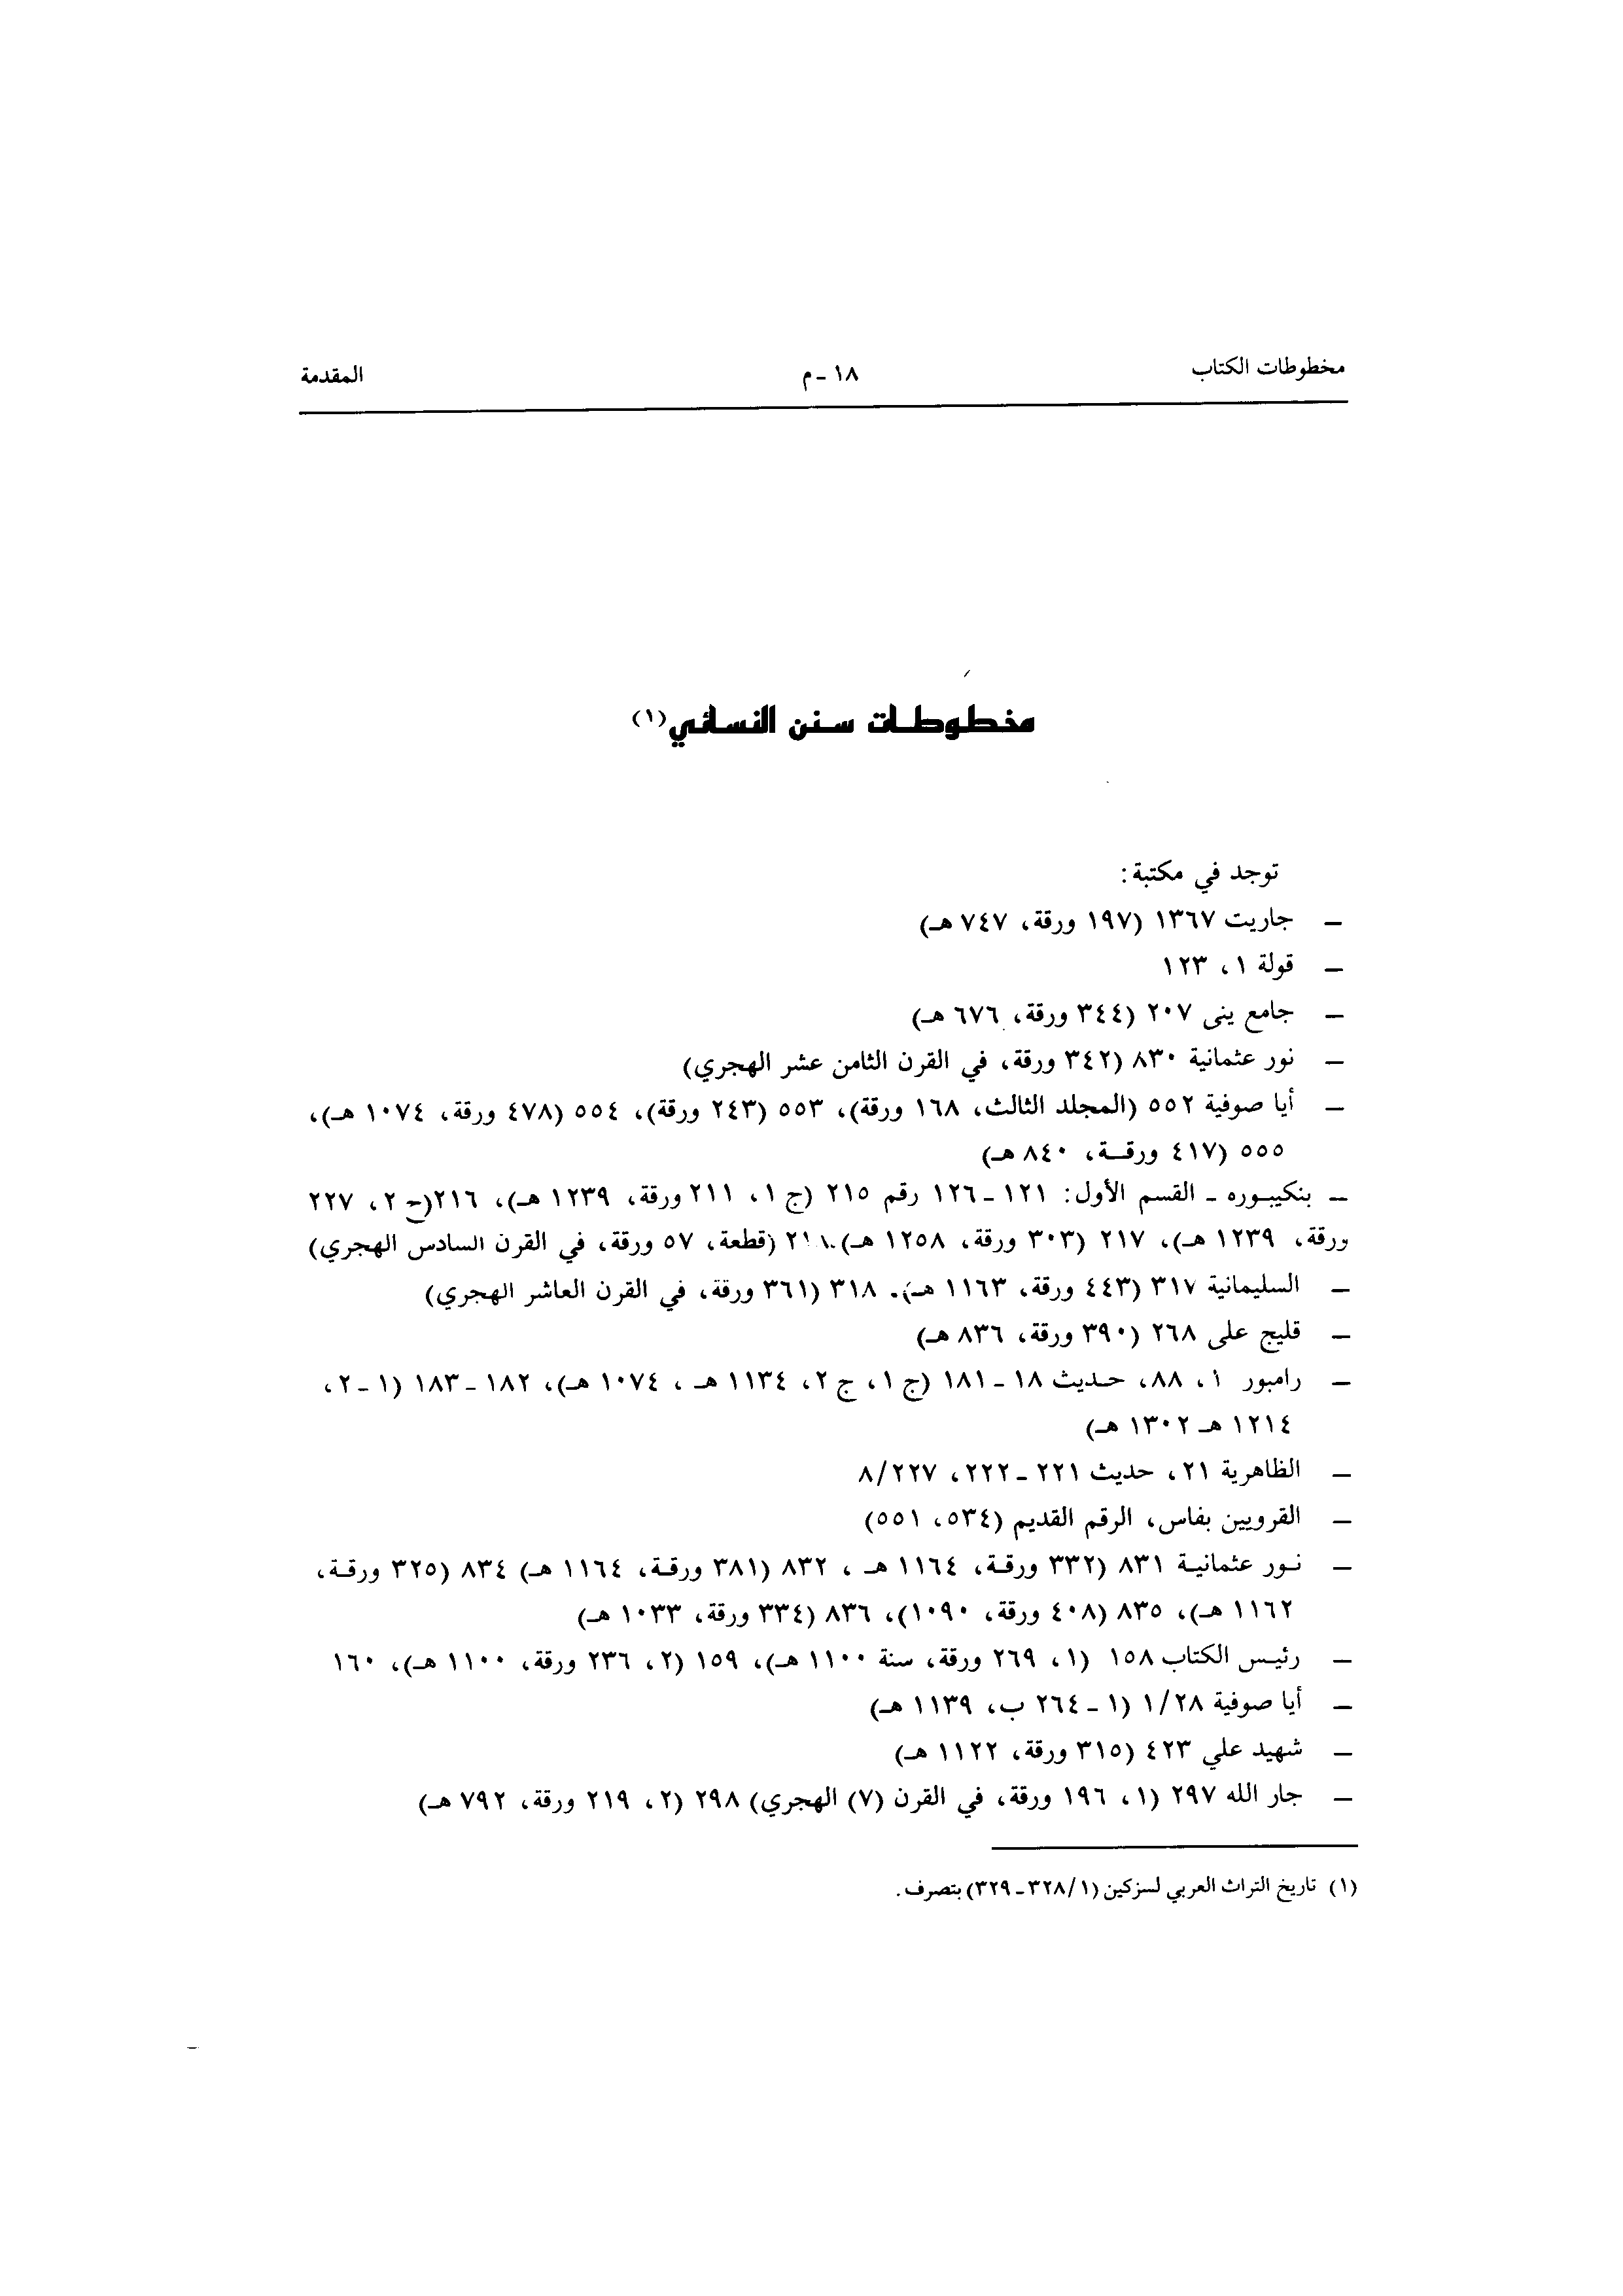 مخطوطات الكتاب ١٨ - م المقدمة
مخطوطات سنن النسائي(١)
توجد في مكتبة:
— جاريت ١٣٦٧ (١٩٧ ورقة، ٧٤٧ هـ)
— قولة ١، ١٢٣
— جامع ينى ٢٠٧ (٣٤٤ ورقة، ٦٧٦ هـ)
— نور عثمانية ٨٣٠ (٣٤٢ ورقة، في القرن الثامن عشر الهجري)
— أيا صوفية ٥٥٢ (المجلد الثالث، ١٦٨ ورقة)، ٥٥٣ (٢٤٣ ورقة)، ٥٥٤ (٤٧٨ ورقة، ١٠٧٤ هـ)،
٥٥٥ (٤١٧ ورقـة، ٨٤٠ هـ)
— بنكيبوره - القسم الأول: ١٢١ - ١٢٦ رقم ٢١٥ (ج ١، ٢١١ ورقة، ١٢٣٩ هـ)، ٢١٦(ج ٢، ٢٢٧
ورقة، ١٢٣٩ هـ)، ٢١٧ (٣٠٣ ورقة، ١٢٥٨ هـ) (قطعة، ٥٧ ورقة، في القرن السادس الهجري)
— السليمانية ٣١٧ (٤٤٣ ورقة، ١١٦٣ هـ). ٣١٨ (٣٦١ ورقة، في القرن العاشر الهجري)
— قليج على ٢٦٨ (٣٩٠ ورقة، ٨٣٦ هـ)
— رامبور ١، ٨٨، حـديث ١٨ - ١٨١ (ج ١، ج ٢، ١١٣٤ هـ ، ١٠٧٤ هـ)، ١٨٢ - ١٨٣ (١ - ٢،
١٢١٤ هـ ١٣٠٢ هـ)
— الظاهرية ٢١، حديث ٢٢١ - ٢٢٢، ٨/٢٢٧
— القرويين بفاس، الرقم القديم (٥٣٤، ٥٥١)
— نـور عثمانيـة ٨٣١ (٣٣٢ ورقـة، ١١٦٤ هـ ، ٨٣٢ (٣٨١ ورقـة، ١١٦٤ هـ) ٨٣٤ (٣٢٥ ورقـة،
١١٦٢ هـ)، ٨٣٥ (٤٠٨ ورقة، ١٠٩٠)، ٨٣٦ (٣٣٤ ورقة، ١٠٣٣ هـ)
— رئيـس الكتاب ١٥٨ (١، ٢٦٩ ورقة، سنة ١١٠٠ هـ)، ١٥٩ (٢، ٢٣٦ ورقة، ١١٠٠ هـ)، ١٦٠
— أيا صوفية ١/٢٨ (١ - ٢٦٤ ب، ١١٣٩ هـ)
— شهيد علي ٤٢٣ (٣١٥ ورقة، ١١٢٢ هـ)
— جار الله ٢٩٧ (١، ١٩٦ ورقة، في القرن (٧) الهجري) ٢٩٨ (٢، ٢١٩ ورقة، ٧٩٢ هـ)
(١) تاريخ التراث العربي لسزكين (١/٣٢٨ - ٣٢٩) بتصرف.